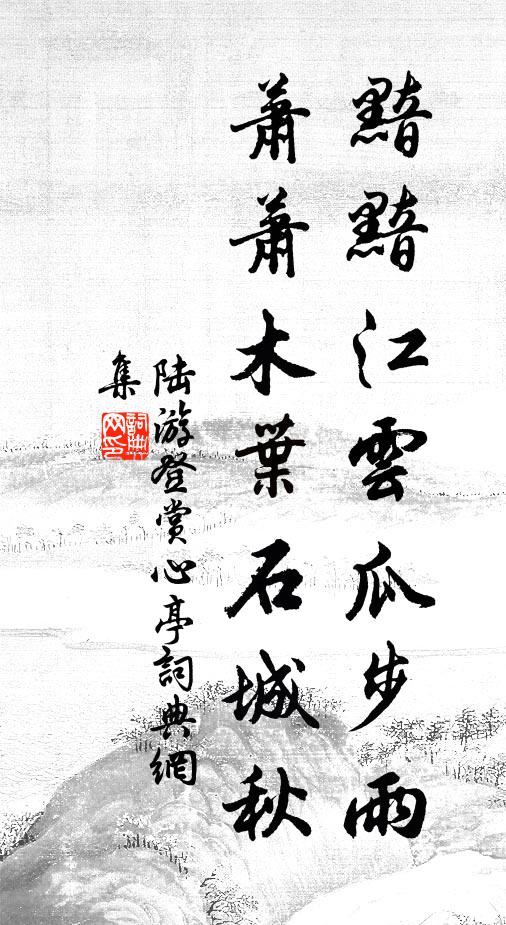 黯黯江雲瓜步雨
蕭蕭木葉石城秋
陸游登賞心亭詞典網
集
詞典網印